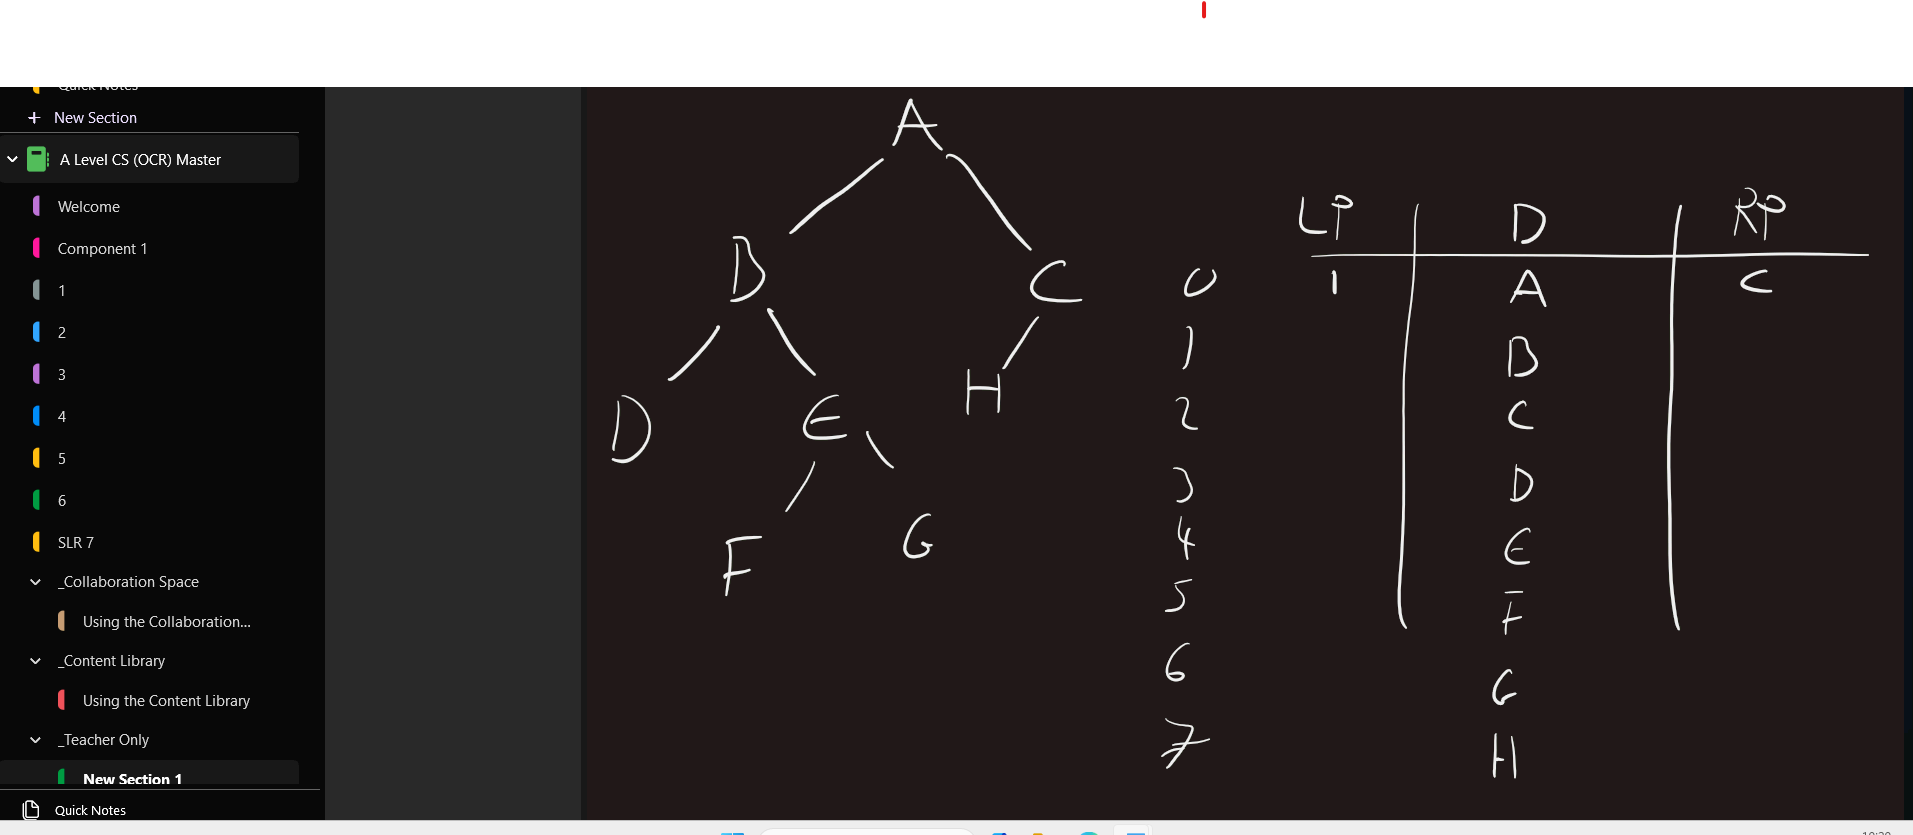 Quick Notes
New Section
A Level CS (OCR) Master
Welcome
Component 1
1
2
3
4
5
6
SLR 7
_Collaboration Space
Using the Collaboration...
_Content Library
Using the Content Library
_Teacher Only
New Section 1
Quick Notes
A
B C
D E H
F G
LP D RP
0 1 A C
1 B
2 C
3 D
4 E
5 F
6 G
7 H